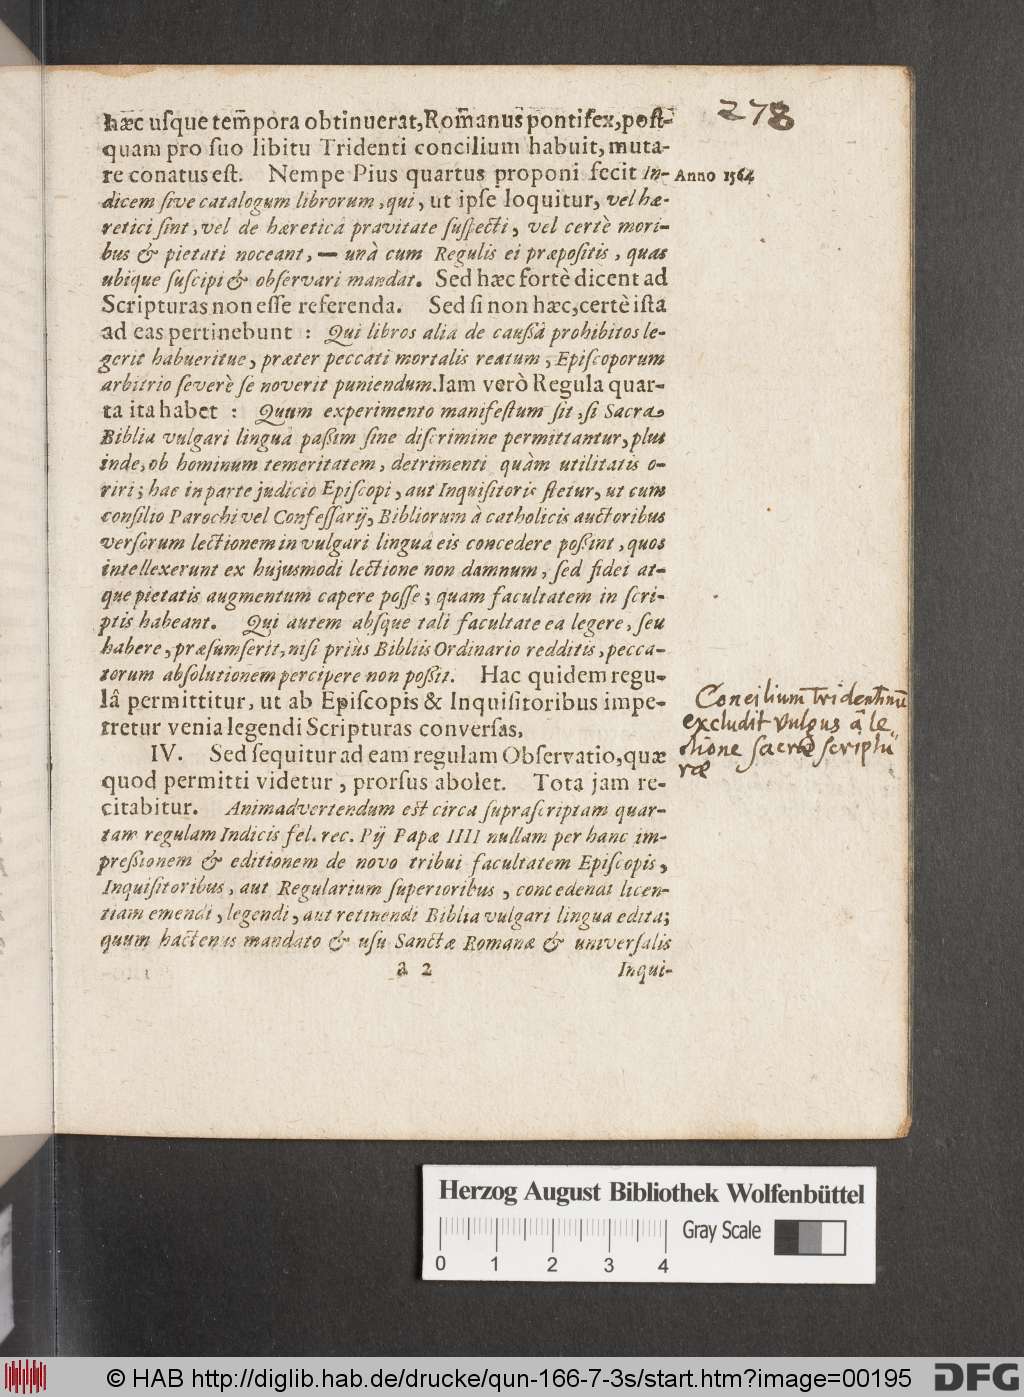 278
hæc uſque tem̃pora obtinuerat, Rom̃anus pontifex, poſt-
quam pro ſuo libitu Tridenti concilium habuit, muta-
re conatus eſt. Nempe Pius quartus proponi fecit In-
Anno 1564
dicem ſive catalogum librorum, qui, ut ipſe loquitur, vel hæ-
retici ſint, vel de hæreticâ pravitate ſuſpecti, vel certè mori-
bus & pietati noceant, — unà cum Regulis ei præpoſitis, quas
ubique ſuſcipi & obſervari mandat. Sed hæc fortè dicent ad
Scripturas non eſſe referenda. Sed ſi non hæc, certè iſta
ad eas pertinebunt : Qui libros alia de cauſſâ prohibitos le-
gerit habueritue, præter peccati mortalis reatum, Epiſcoporum
arbitrio ſeverè ſe noverit puniendum. Iam verò Regula quar-
ta ita habet : Quum experimento manifeſtum ſit, ſi Sacra
Biblia vulgari linguâ paßim ſine diſcrimine permittantur, plus
inde, ob hominum temeritatem, detrimenti quàm utilitatis o-
riri; hac in parte judicio Epiſcopi, aut Inquiſitoris ſtetur, ut cum
conſilio Parochi vel Confeſſarij, Bibliorum à catholicis auctoribus
verſorum lectionem in vulgari lingua eis concedere poßint, quos
intellexerunt ex hujusmodi lectione non damnum, ſed fidei at-
que pietatis augmentum capere poſſe; quam facultatem in ſcri-
ptis habeant. Qui autem absque tali facultate ea legere, ſeu
habere, præſumſerit, niſi priùs Bibliis Ordinario redditis, pecca-
torum abſolutionem percipere non poßit. Hac quidem regu-
lâ permittitur, ut ab Epiſcopis & Inquiſitoribus impe-
tretur venia legendi Scripturas converſas.
Concilium Tridentinũ
excludit vulgus â le„
ctione ſacræ ſcriptu
ræ
IV. Sed ſequitur ad eam regulam Obſervatio, quæ
quod permitti videtur, prorſus abolet. Tota jam re-
citabitur. Animadvertendum est circa ſupraſcriptam quar-
tam regulam Indicis fel. rec. Pij Papæ IIII nullam per hanc im-
preßionem & editionem de novo tribui facultatem Epiſcopis,
Inquiſitoribus, aut Regularium ſuperioribus, concedendi licen-
tiam emendi, legendi, aut retinendi Biblia vulgari lingua edita;
quum hactenus mandato & uſu Sanctæ Romanæ & univerſalis
a 2
Inqui-
Herzog August Bibliothek Wolfenbüttel
Gray Scale
0 1 2 3 4
© HAB http://diglib.hab.de/drucke/qun-166-7-3s/start.htm?image=00195
DFG